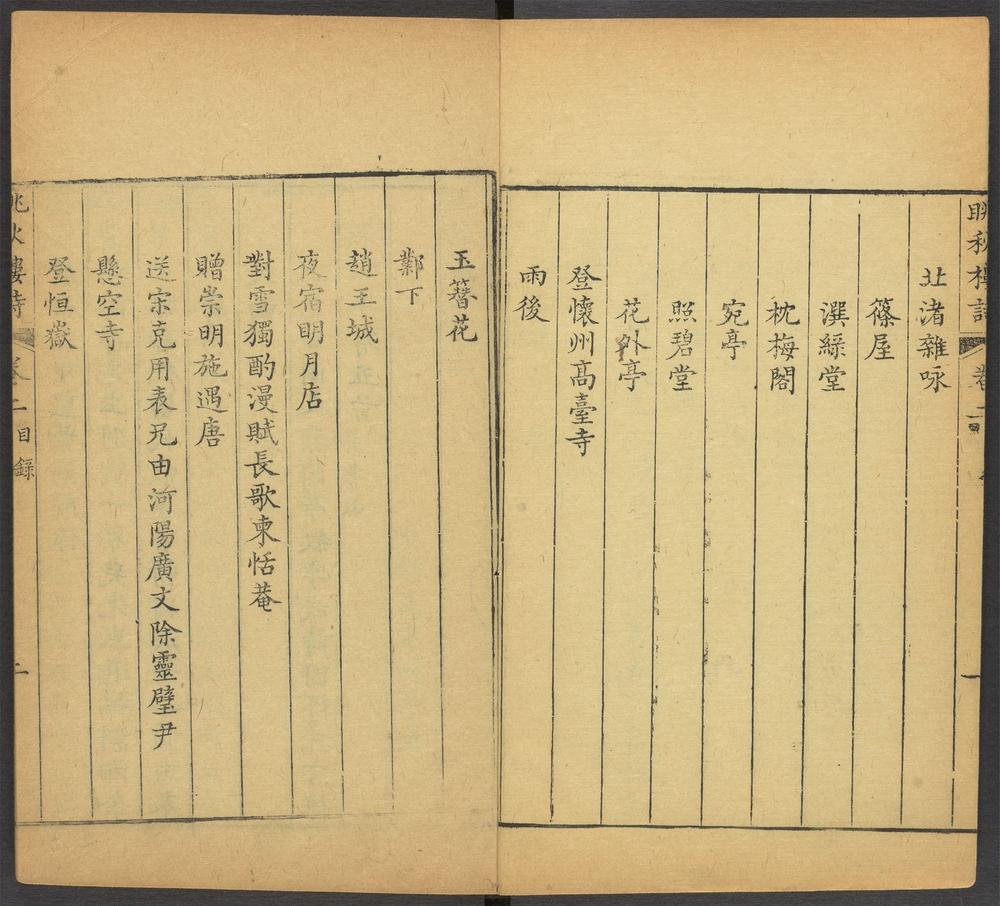 眺秋樓詩 卷二 一
北渚雜咏
篠屋
潠綠堂
枕梅閣
宛亭
照碧堂
花外亭
登懷州高臺寺
雨後
玉簪花
鄴下
趙王城
夜宿明月店
對雪獨酌漫賦長歌柬恬菴
贈崇明施遇唐
送宋克用表兄由河陽廣文除靈璧尹
懸空寺
登恒嶽
眺秋樓詩 卷二目錄 二